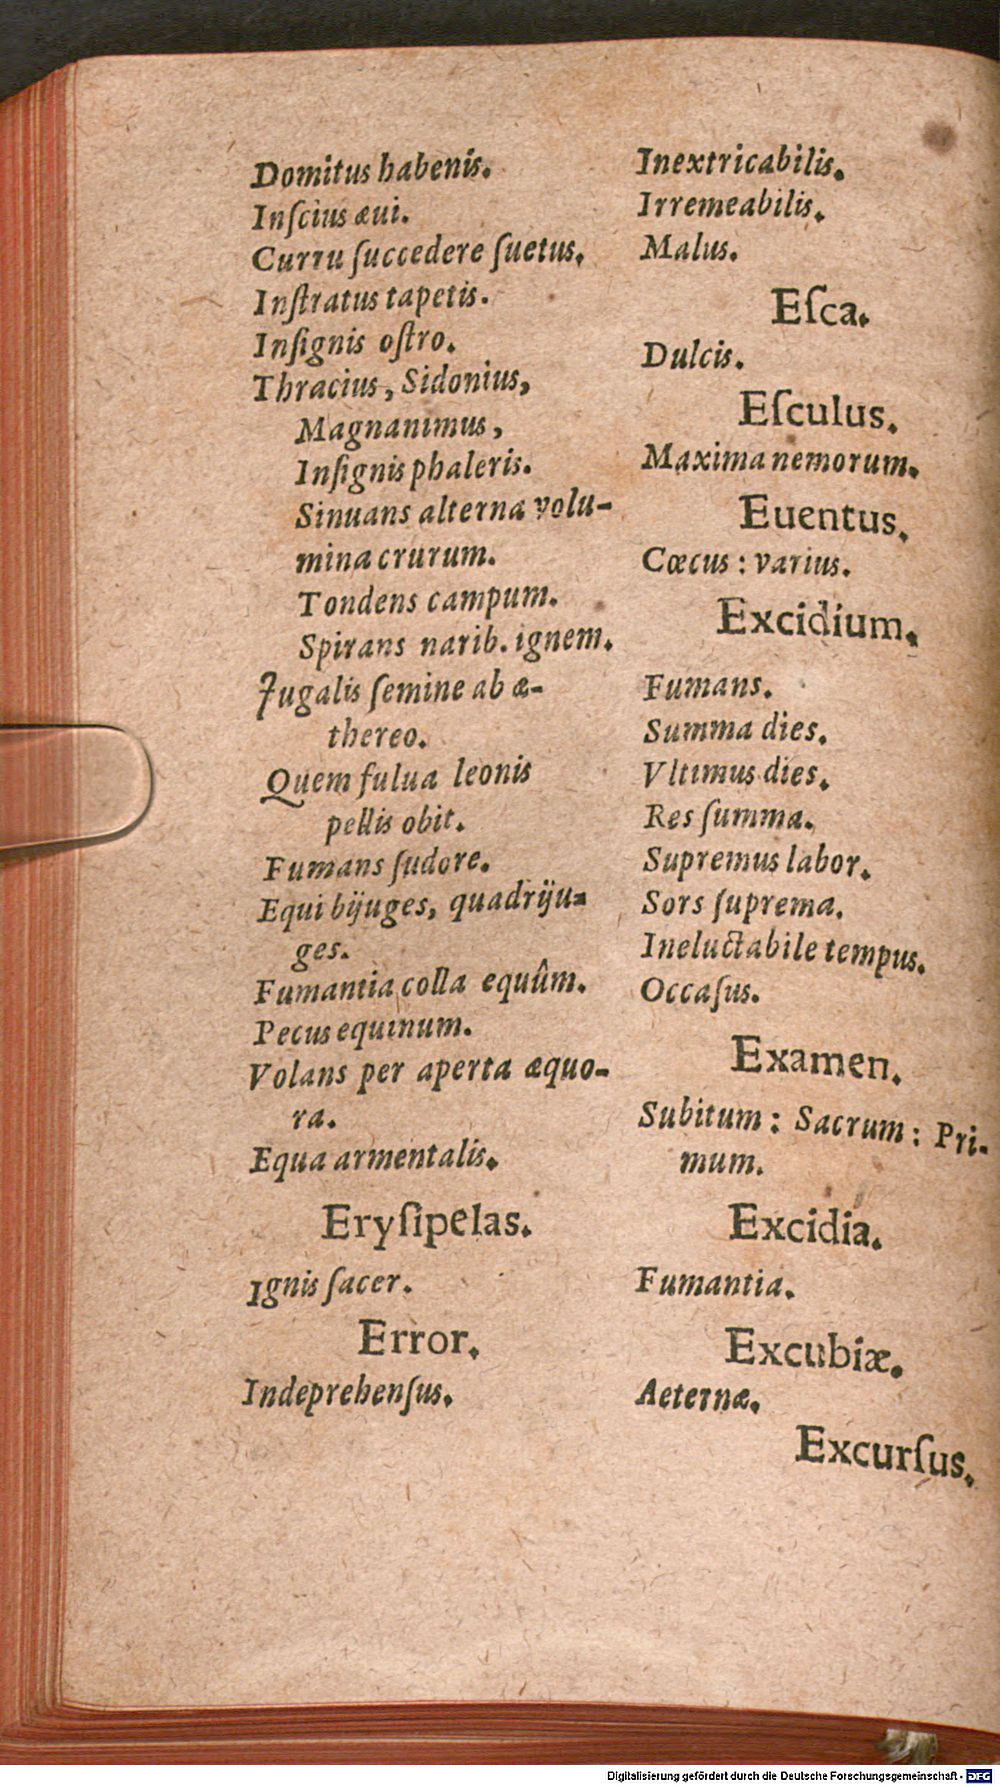 Domitus habenis.
Inſcius æui.
Curru ſuccedere ſuetus.
Inſtratus tapetis.
Inſignis oſtro.
Thracius, Sidonius,
Magnanimus,
Inſignis phaleris.
Sinuans alterna volu-
mina crurum.
Tondens campum.
Spirans narib. ignem.
Jugalis ſemine ab æ-
thereo.
Quem fulua leonis
pellis obit.
Fumans ſudore.
Equi bijuges, quadriju-
ges.
Fumantia colla equûm.
Pecus equinum.
Volans per aperta æquo-
ra.
Equa armentalis.
Eryſipelas.
Ignis ſacer.
Error.
Indeprehenſus.
Inextricabilis.
Irremeabilis.
Malus.
Eſca.
Dulcis.
Eſculus.
Maxima nemorum.
Euentus.
Cœcus: varius.
Excidium.
Fumans.
Summa dies.
Vltimus dies.
Res ſumma.
Supremus labor.
Sors ſuprema.
Ineluctabile tempus.
Occaſus.
Examen.
Subitum: Sacrum: Pri-
mum.
Excidia.
Fumantia.
Excubiæ.
Aeternæ.
Excurſus.
Digitalisierung gefördert durch die Deutsche Forschungsgemeinschaft - DFG